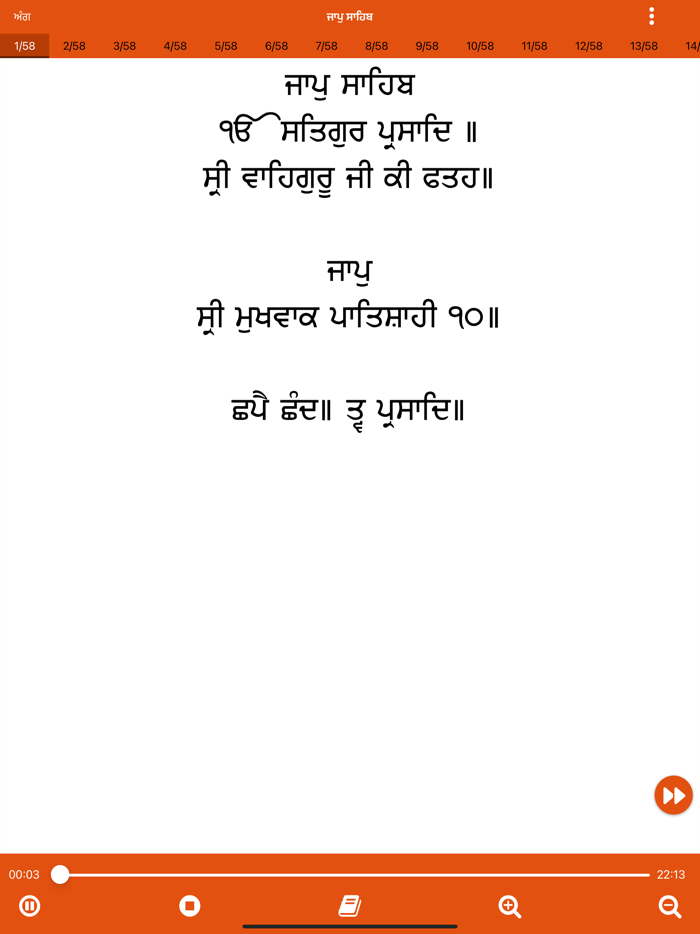 ਅੰਗ
ਜਾਪੁ ਸਾਹਿਬ
1/58 2/58 3/58 4/58 5/58 6/58 7/58 8/58 9/58 10/58 11/58 12/58 13/58 14/
ਜਾਪੁ ਸਾਹਿਬ
ੴ ਸਤਿਗੁਰ ਪ੍ਰਸਾਦਿ ॥
ਸ੍ਰੀ ਵਾਹਿਗੁਰੂ ਜੀ ਕੀ ਫਤਹ॥
ਜਾਪੁ
ਸ੍ਰੀ ਮੁਖਵਾਕ ਪਾਤਿਸ਼ਾਹੀ ੧੦॥
ਛਪੈ ਛੰਦ॥ ਤ੍ਵ ਪ੍ਰਸਾਦਿ॥
00:03 22:13